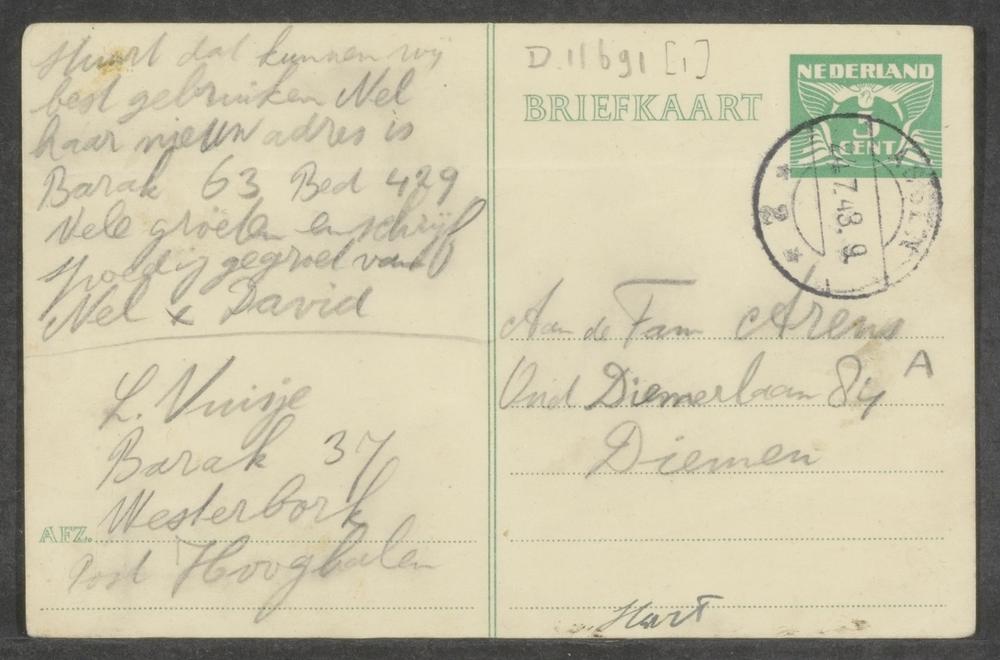 stuurt dat kunnen wij
best gebruiken Nel
haar nieuw adres is
Barak 63 Bed 429
Vele groeten en schrijf
spoedig gegroet van
Nel x David
L. Vuisje
Barak 37
Westerbork
AFZ.
Post Hooghalen
D.11691 [1]
BRIEFKAART
NEDERLAND
5
CENT
7.43.9
2
Aan de Fam Arens
Oud Diemerlaan 84 A
Diemen